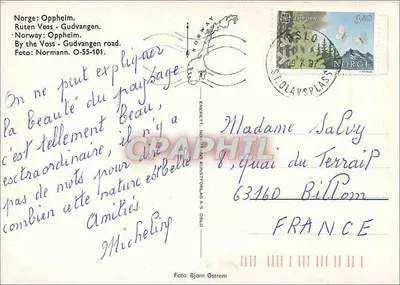 Norge: Oppheim.
Ruten Voss - Gudvangen.
Norway: Oppheim.
By the Voss - Gudvangen road.
Foto: Normann. O-55-101.
On ne peut expliquer
la beauté du paysage
c'est tellement beau,
esctraordinaire, il n'y a
pas de mots pour dire
combien cette nature est belle
Amitiés
Micheline
NORWAY
OSLO
ST. OLAVSPLASS
3,40
NORGE
CPARAMA
Madame Salvy
8, quai du Terrail
63160 Billom
FRANCE
Foto: Bjørn Østrem